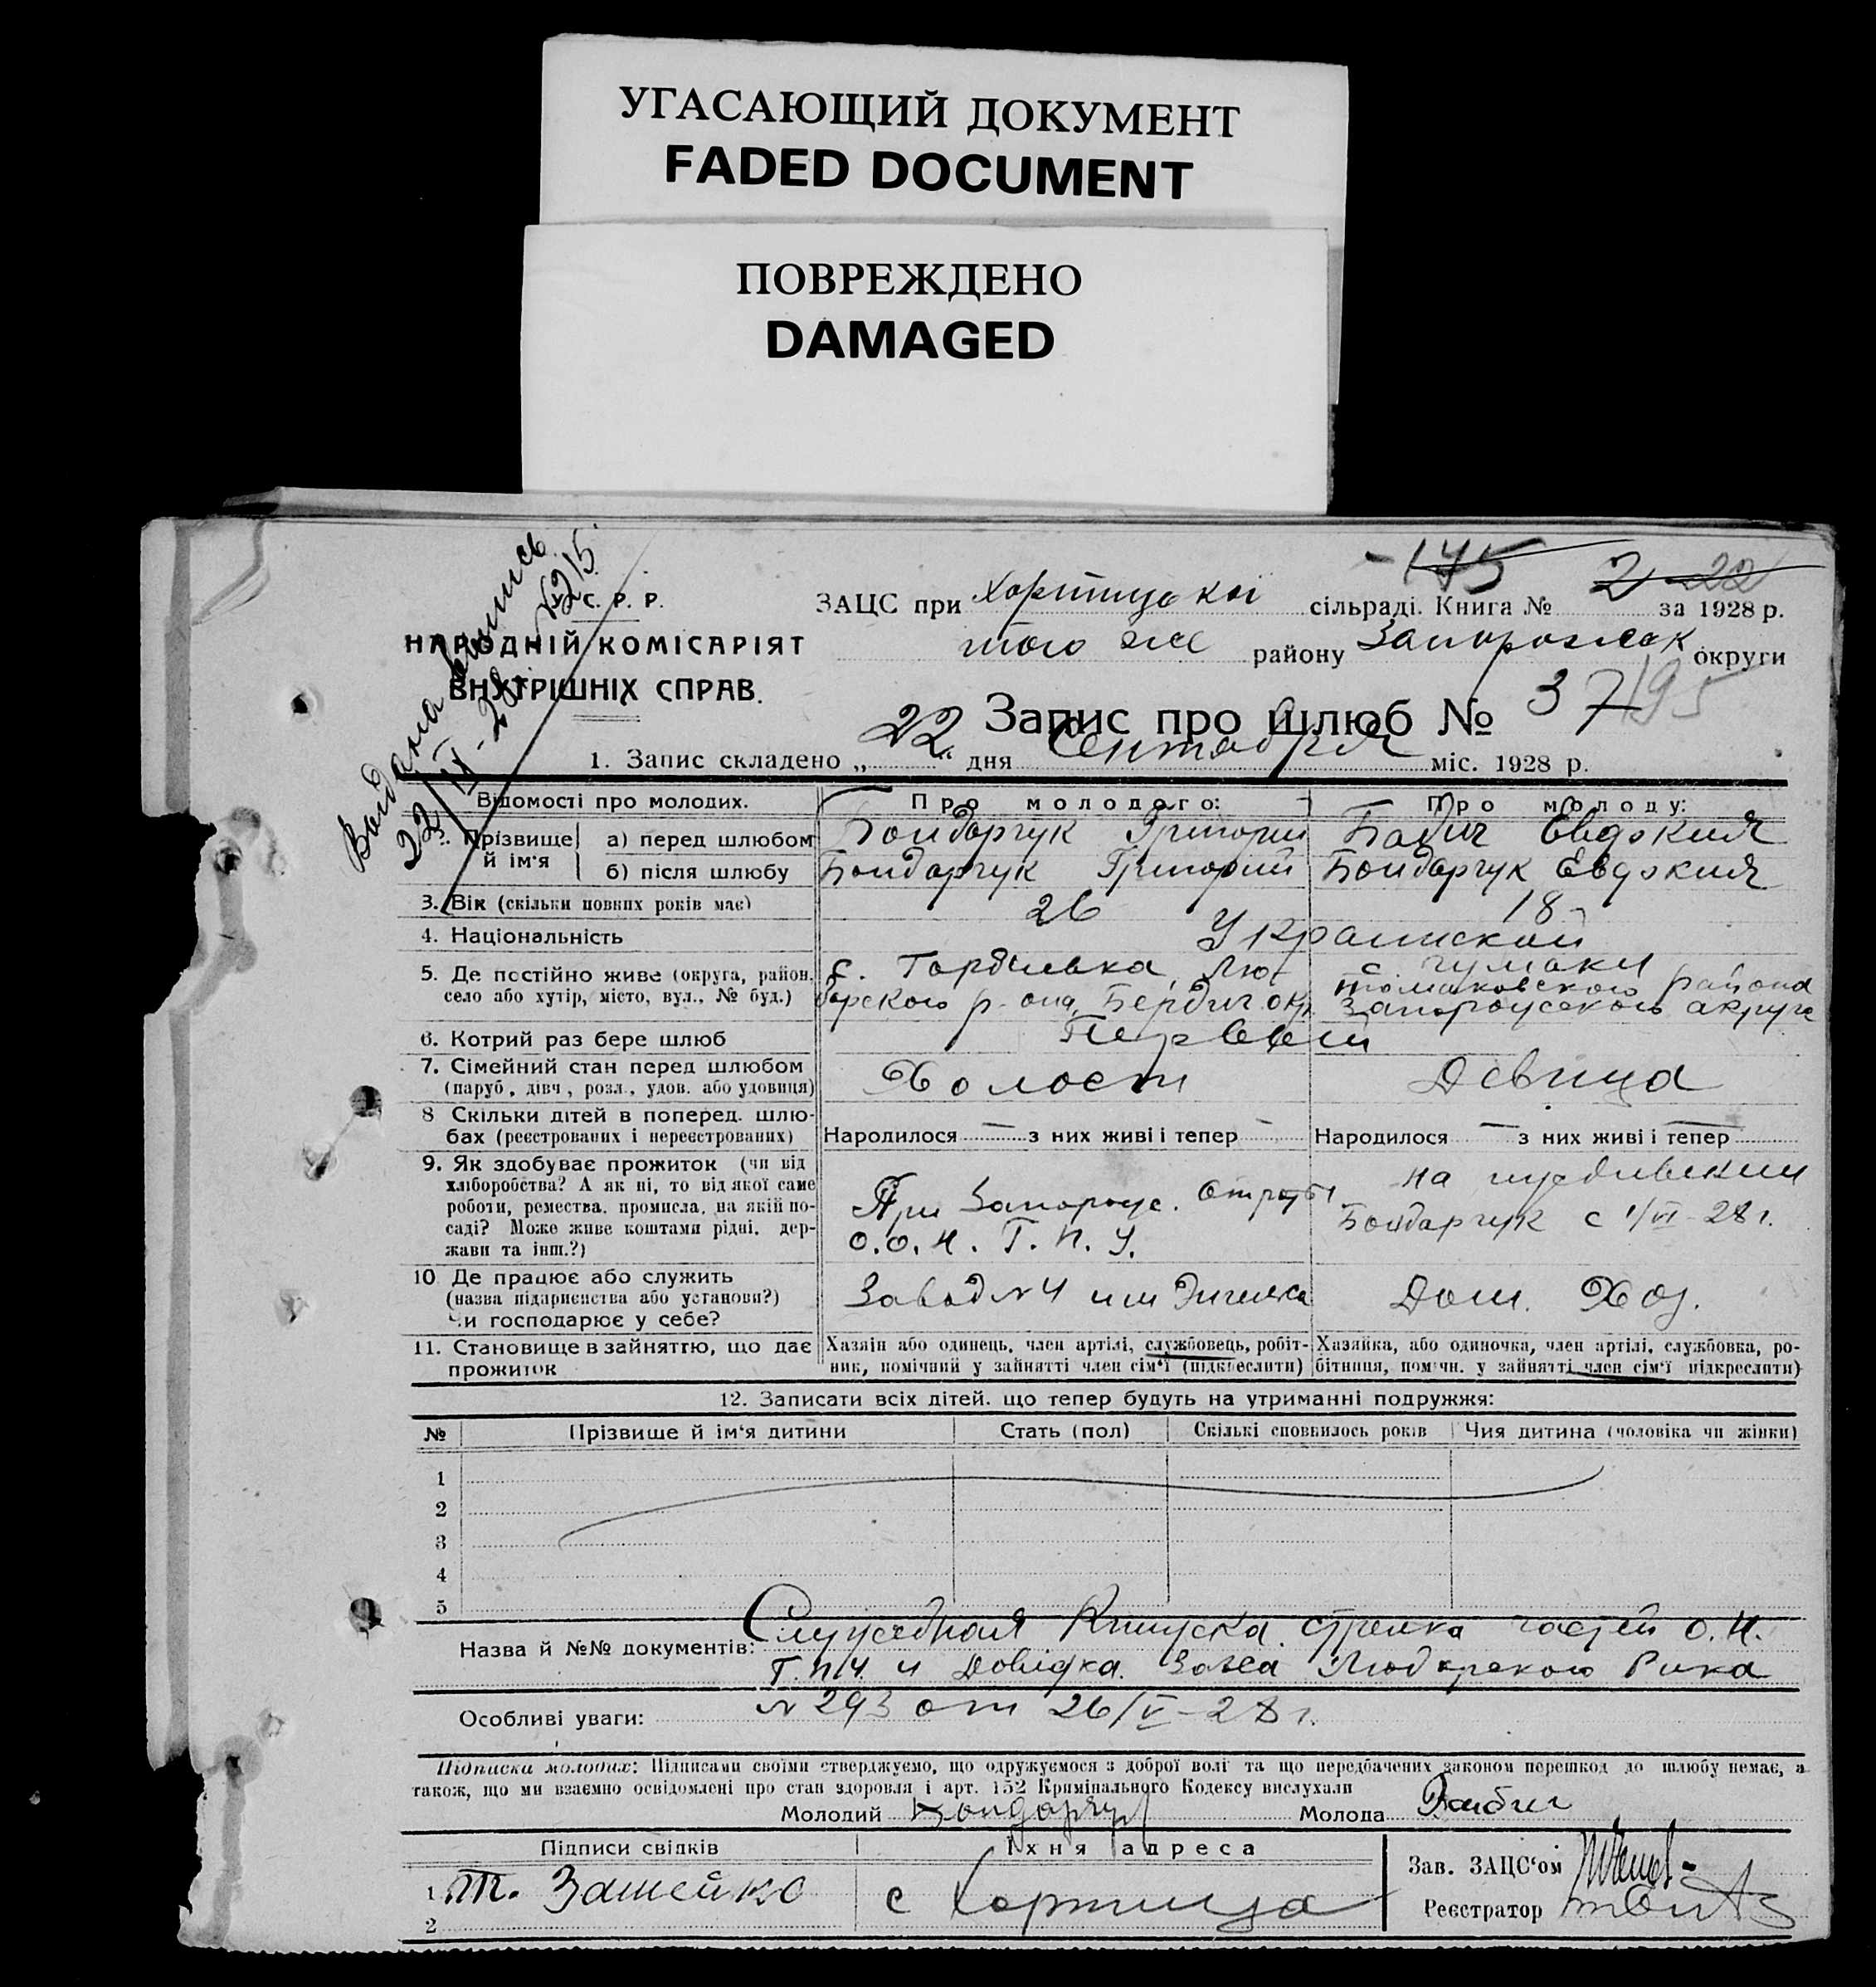 УГАСАЮЩИЙ ДОКУМЕНТ
FADED DOCUMENT
ПОВРЕЖДЕНО
DAMAGED
Выдана выпись
22/IX-28 №215
С. Р. Р.
НАРОДНІЙ КОМІСАРІЯТ
ВНУТРІШНІХ СПРАВ.
175 2 22
ЗАЦС при Хортицькоі сільраді. Книга № за 1928 р.
того же району Запорожск округи
Запис про шлюб № 37 195
1. Запис складено „22“ дня Сентября міс. 1928 р.
Відомості про молодих. Про молодого: Про молоду:
Прізвище й ім'я а) перед шлюбом Бондарчук Григорий Бабич Евдокия
б) після шлюбу Бондарчук Григорий Бондарчук Евдокия
3. Вік (скільки повних років має) 26 18
4. Національність Украинской
5. Де постійно живе (округа, район, с. Гордиевка, Лю- с. Чумаки
село або хутір, місто, вул., № буд.) барского р-она, Бердич. окр. Томаковского района
Запорожского округа
6. Котрий раз бере шлюб Первый
7. Сімейний стан перед шлюбом Холост Девица
(паруб., дівч., розл., удов. або удовиця)
8 Скільки дітей в поперед. шлю-
бах (реєстрованих і нереєстрованих) Народилося — з них живі і тепер — Народилося — з них живі і тепер —
9. Як здобуває прожиток (чи від на иждивении
хліборобства? А як ні, то від якої саме При Запорож. Отряды Бондарчук с 1/VI-28 г.
роботи, ремества, промисла, на якій по- О.О.Н. Г.П.У.
саді? Може живе коштами рідні, дер-
жави та інш.?)
10 Де працює або служить Завод №4 им Энгельса Дом. Хоз.
(назва підприємства або установи?)
Чи господарює у себе?
11. Становище в зайняттю, що дає Хазяїн або одинець, член артілі, службовець, робіт- Хазяйка, або одиночка, член артілі, службовка, ро-
прожиток ник, помічний у зайнятті член сім'ї (підкреслити) бітниця, помічн. у зайнятті член сім'ї підкреслити)
12. Записати всіх дітей, що тепер будуть на утриманні подружжя:
№ Прізвище й ім'я дитини Стать (пол) Скількі сповнилось років Чия дитина (чоловіка чи жінки)
1
2
3
4
5
Назва й №№ документів: Служебная Книжка стрелка частей О.Н.
Г.П.У. и Довідка Загса Любарского Рика
Особливі уваги: №293 от 26/V-28 г.
Підписка молодих: Підписами своїми стверджуємо, що одружуємося з доброї волі та що передбачених законом перешкод до шлюбу немає, а
також, що ми взаємно освідомлені про стан здоровля і арт. 152 Кримінального Кодексу вислухали
Молодий Бондарчук Молода Бабич
Підписи свідків Їхня адреса Зав. ЗАЦС'ом
1 Т. Зашейко с Хортица
2 Реєстратор